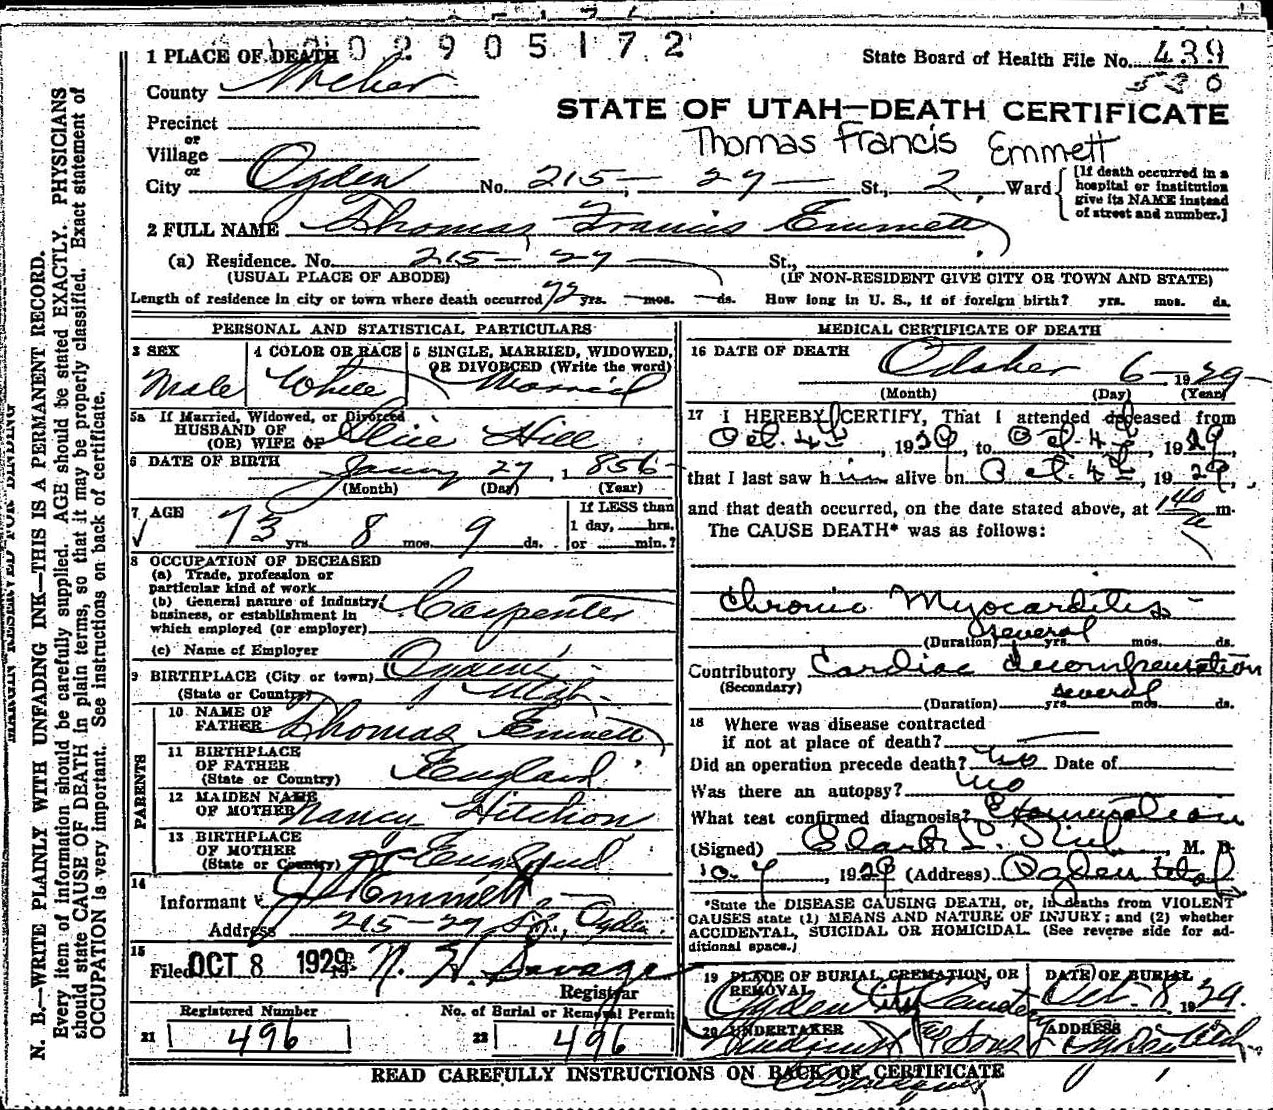 002905172
1 PLACE OF DEATH
State Board of Health File No. 439
530
County Weber
STATE OF UTAH—DEATH CERTIFICATE
Precinct
Thomas Francis Emmett
or
Village
or
City Ogden No. 215 - 27 - St., 2 Ward
[If death occurred in a hospital or institution give its NAME instead of street and number.]
2 FULL NAME Thomas Francis Emmett
(a) Residence. No. 215 - 27 St.,
(USUAL PLACE OF ABODE) (IF NON-RESIDENT GIVE CITY OR TOWN AND STATE)
Length of residence in city or town where death occurred 72 yrs. — mos. — ds. How long in U. S., if of foreign birth? yrs. mos. ds.
PERSONAL AND STATISTICAL PARTICULARS
3 SEX Male
4 COLOR OR RACE White
5 SINGLE, MARRIED, WIDOWED, OR DIVORCED (Write the word) Married
5a If Married, Widowed, or Divorced
HUSBAND OF
(OR) WIFE OF Alice Hill
6 DATE OF BIRTH Jany 27, 1856
(Month) (Day) (Year)
7 AGE 73 yrs 8 mos. 9 ds.
If LESS than 1 day, hrs. or min.?
8 OCCUPATION OF DECEASED
(a) Trade, profession or particular kind of work
(b) General nature of industry, business, or establishment in which employed (or employer) Carpenter
(c) Name of Employer
9 BIRTHPLACE (City or town) Ogden
(State or Country) Utah
PARENTS
10 NAME OF FATHER Thomas Emmett
11 BIRTHPLACE OF FATHER (State or Country) England
12 MAIDEN NAME OF MOTHER Nancy Hitchon
13 BIRTHPLACE OF MOTHER (State or Country) England
14 Informant Emmett
Address 215 - 27 St., Ogden
15 Filed OCT 8 1929 N. H. Savage
Registrar
Registered Number
21 496
No. of Burial or Removal Permit
22 496
MEDICAL CERTIFICATE OF DEATH
16 DATE OF DEATH October 6 - 1929
(Month) (Day) (Year)
17 I HEREBY CERTIFY, That I attended deceased from
Oct. 4th, 1929, to Oct. 4th, 1929,
that I last saw him alive on Oct. 4th, 1929,
and that death occurred, on the date stated above, at 1 40 m.
The CAUSE DEATH* was as follows:
Chronic Myocarditis -
(Duration) several yrs. mos. ds.
Contributory Cardiac decompensation
(Secondary)
(Duration) yrs. several mos. ds.
18 Where was disease contracted
if not at place of death?
Did an operation precede death? no Date of
Was there an autopsy? no
What test confirmed diagnosis?
(Signed) M. D.
10-7, 1929 (Address) Ogden Utah
*State the DISEASE CAUSING DEATH, or, in deaths from VIOLENT
CAUSES state (1) MEANS AND NATURE OF INJURY; and (2) whether
ACCIDENTAL, SUICIDAL OR HOMICIDAL. (See reverse side for ad-
ditional space.)
19 PLACE OF BURIAL, CREMATION, OR REMOVAL Ogden City
DATE OF BURIAL Oct. 8, 1929.
20 UNDERTAKER & Sons
ADDRESS Ogden Utah
READ CAREFULLY INSTRUCTIONS ON BACK OF CERTIFICATE
N. B.—WRITE PLAINLY WITH UNFADING INK—THIS IS A PERMANENT RECORD.
Every item of information should be carefully supplied. AGE should be stated EXACTLY. PHYSICIANS
should state CAUSE OF DEATH in plain terms, so that it may be properly classified. Exact statement of
OCCUPATION is very important. See instructions on back of certificate.